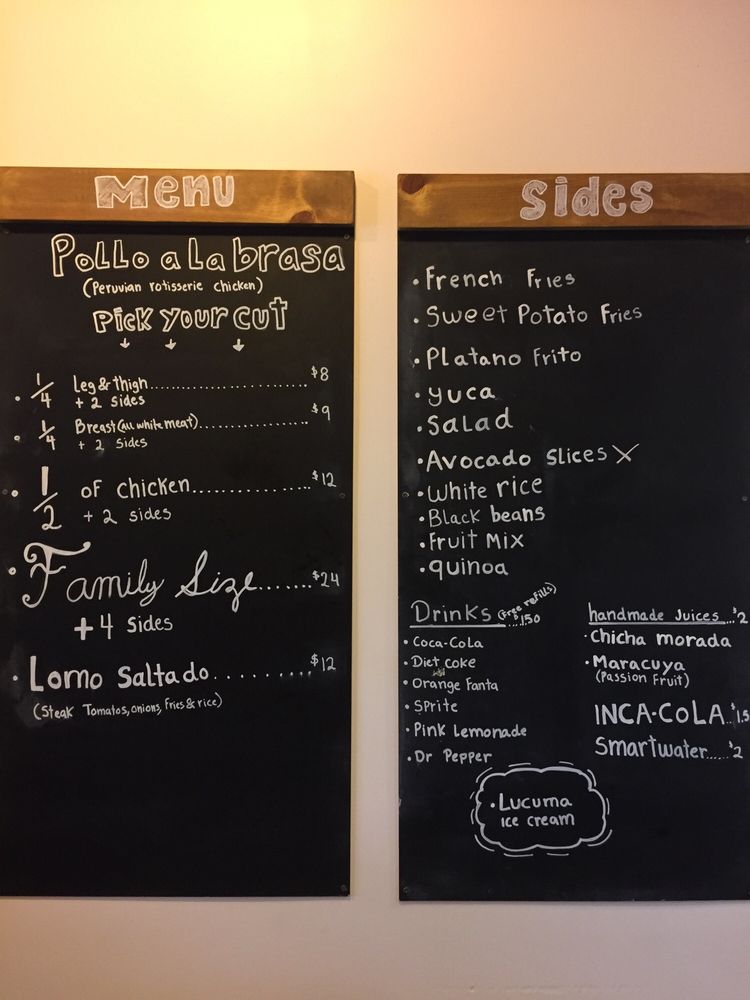 Menu
Pollo a La brasa
(Peruvian rotisserie chicken)
Pick your cut
• 1/4 Leg & thigh........................ $8
+ 2 sides
• 1/4 Breast (all white meat)................ $9
+ 2 sides
• 1/2 of chicken................ $12
+ 2 sides
• Family Size....... $24
+4 sides
• Lomo Saltado.......... $12
(Steak Tomatoes, onions, fries & rice)
Sides
• French Fries
• Sweet Potato Fries
• Platano Frito
• yuca
• Salad
• Avocado slices X
• White rice
• Black beans
• Fruit Mix
• quinoa
Drinks (Free refills) ... $1.50
• Coca-Cola
• Diet coke
• Orange Fanta
• Sprite
• Pink Lemonade
• Dr Pepper
handmade Juices ... $2
• Chicha morada
• Maracuya
(Passion Fruit)
INCA•COLA.. $1.5
Smartwater...... $2
• Lucuma
ice cream